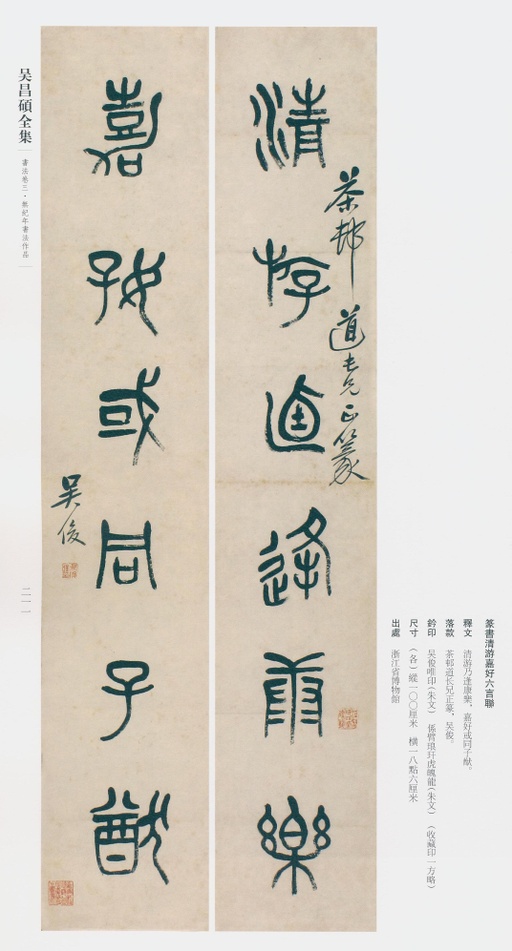 清游卤逢康樂
茶邨道長兄正篆
嘉好或同子猷
吴俊
篆書清游嘉好六言聯
釋文　清游乃逢康樂，嘉好或同子猷。
落款　茶邨道长兄正篆，吴俊。
鈐印　吴俊唯印（朱文）　係臂琅玕虎魄龍（朱文）　（收藏印一方略）
尺寸　（各）縱一〇〇厘米　横一八點六厘米
出處　浙江省博物館
吴昌碩全集
書法卷三·無紀年書法作品
二一一